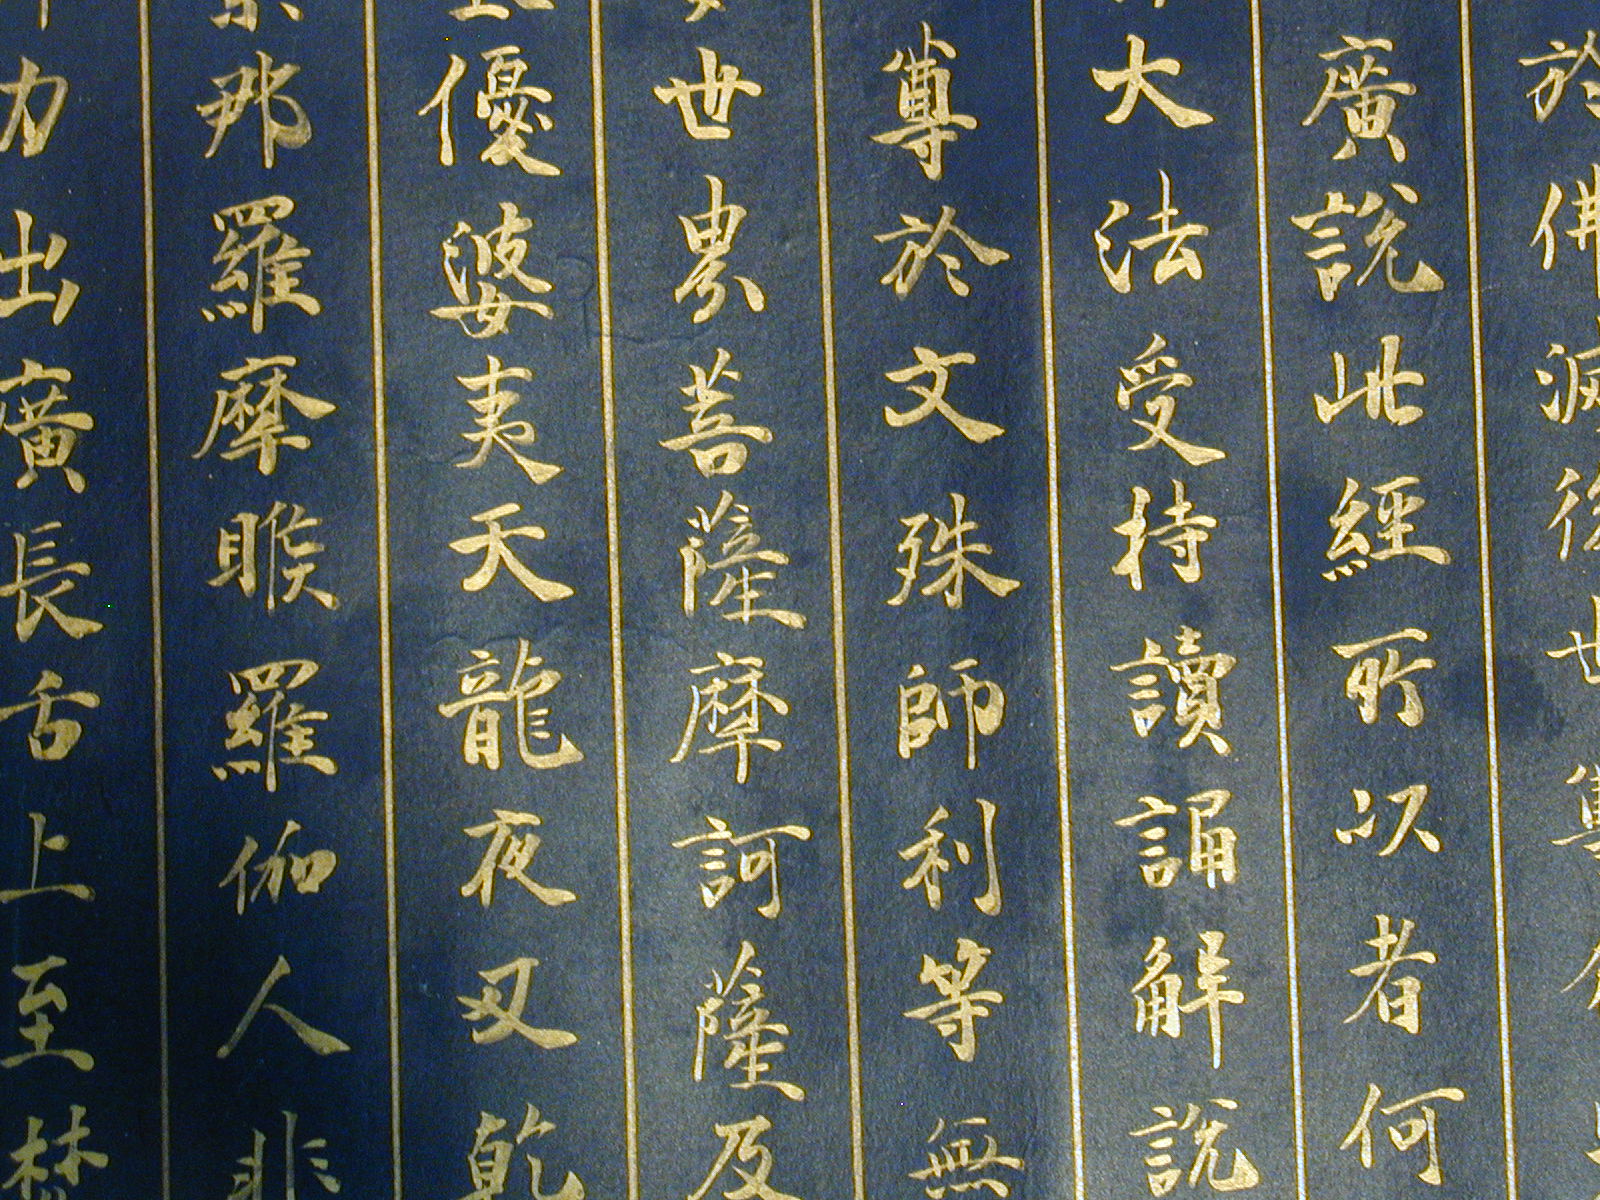 於佛滅後世尊分
廣說此經所以者何
大法受持讀誦解說
尊於文殊師利等無
世界菩薩摩訶薩及
優婆夷天龍夜叉乾
那羅摩睺羅伽人非
力出廣長舌上至梵